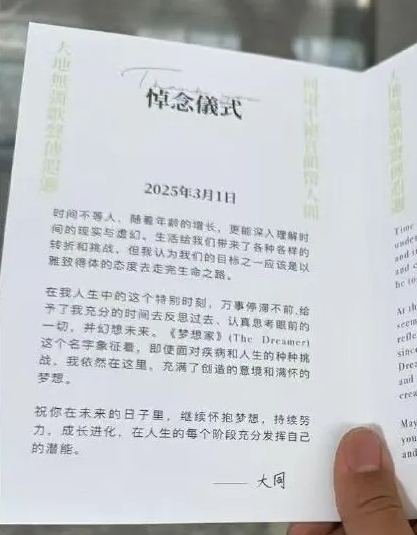 悼念儀式
2025年3月1日
时间不等人、随着年龄的增长，更能深入理解时
间的现实与虚幻。生活给我们带来了各种各样的
转折和挑战，但我认为我们的目标之一应该是以
雅致得体的态度去走完生命之路。
在我人生中的这个特别时刻，万事停滞不前,给
予了我充分的时间去反思过去、认真思考眼前的
一切，并幻想未来。《梦想家》(The Dreamer)
这个名字象征着，即使面对疾病和人生的种种挑
战、我依然在这里，充满了创造的意境和满怀的
梦想。
祝你在未来的日子里，继续怀抱梦想，持续努
力，成长进化，在人生的每个阶段充分发挥自己
的潜能。
—— 大同
Time
under
and
and c
be to
At th
seem
refle
since
Drea
and
crea
May
you
and